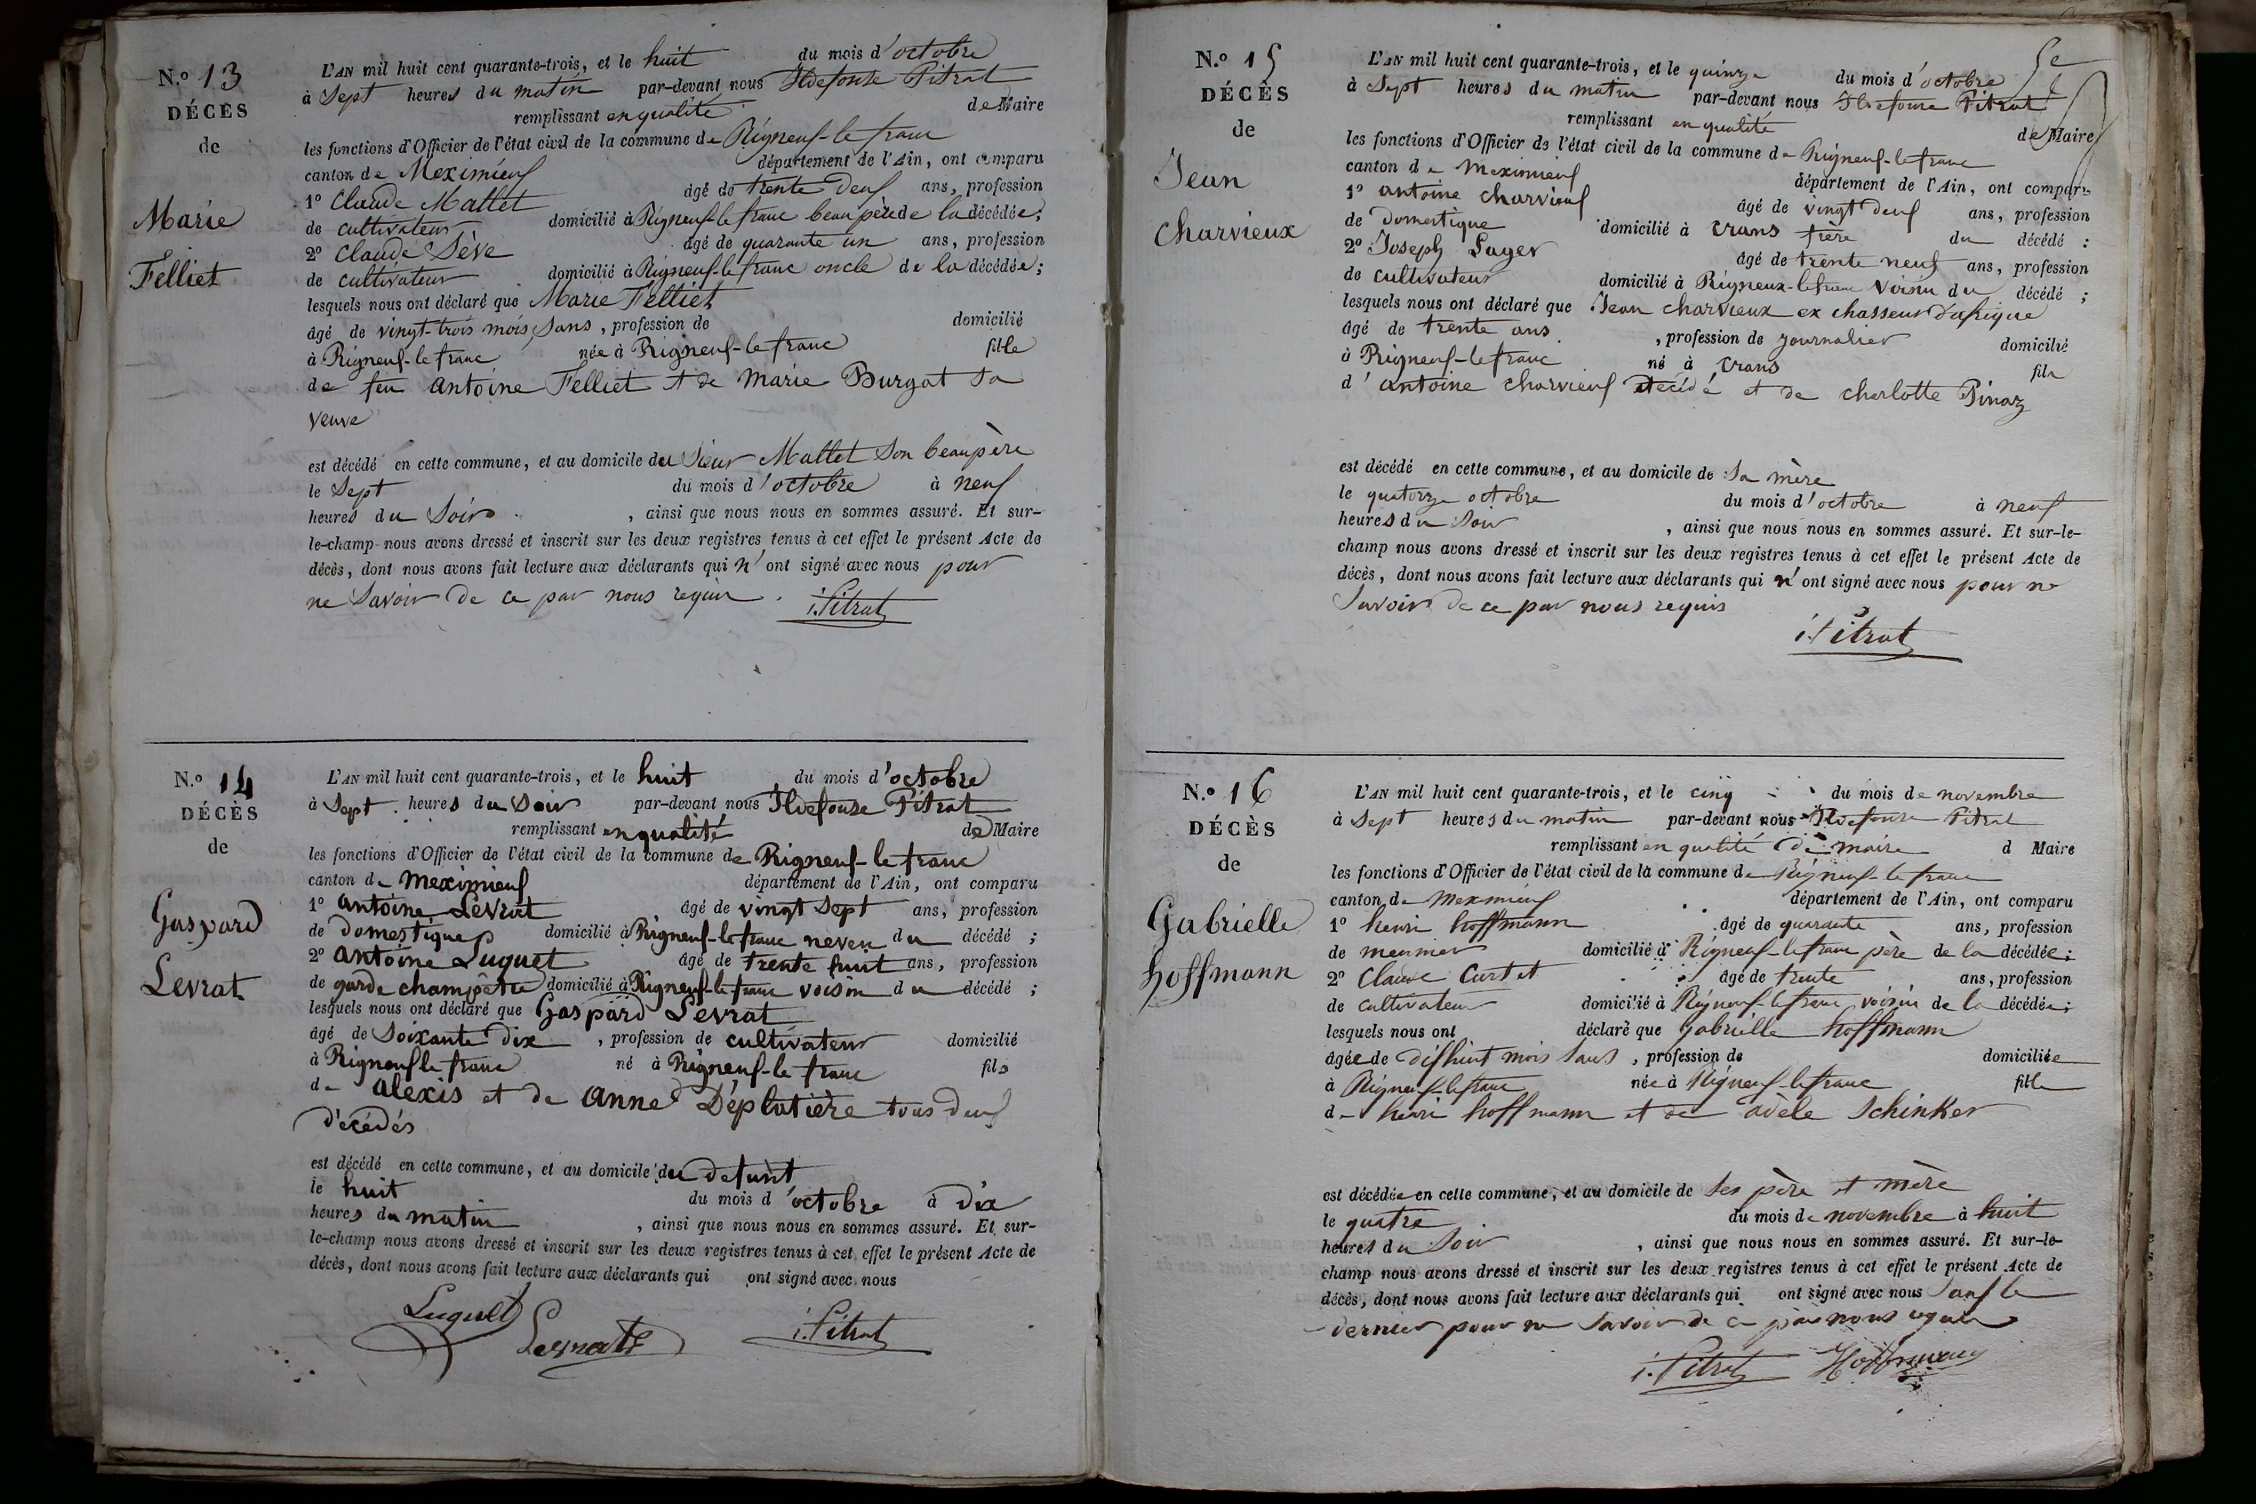 N.º 13
DÉCÈS
de
Marie
Felliet
L'AN mil huit cent quarante-trois, et le huit du mois d'octobre
à Sept heures du matin par-devant nous Ildefonse Pitrat
remplissant en qualité de Maire
les fonctions d'Officier de l'état civil de la commune de Rigneux-le franc
canton de Meximieux département de l'Ain, ont comparu
1º Claude Mallet âgé de trente deux ans, profession
de cultivateur domicilié à Rigneux-le franc beau père de la décédée;
2º Claude Sève âgé de quarante un ans, profession
de cultivateur domicilié à Rigneux-le franc oncle de la décédée;
lesquels nous ont déclaré que Marie Felliet
âgé de vingt-trois mois, Sans, profession de domicilié
à Rigneux-le franc née à Rigneux-le franc fille
de feu Antoine Felliet et de Marie Burgat sa
veuve
est décédé en cette commune, et au domicile du Sieur Mallet Son beaupère
le Sept du mois d'octobre à neuf
heures du Soir, ainsi que nous nous en sommes assuré. Et sur-
le-champ nous avons dressé et inscrit sur les deux registres tenus à cet effet le présent Acte de
décès, dont nous avons fait lecture aux déclarants qui n'ont signé avec nous pour
ne Savoir de ce par nous requis. i. Pitrat
N.º 14
DÉCÈS
de
Gaspard
Levrat
L'AN mil huit cent quarante-trois, et le huit du mois d'octobre
à Sept heures du Soir par-devant nous Ildefonse Pitrat
remplissant en qualité de Maire
les fonctions d'Officier de l'état civil de la commune de Rigneux-le franc
canton de Meximieux département de l'Ain, ont comparu
1º Antoine Levrat âgé de vingt Sept ans, profession
de domestique domicilié à Rigneux-le franc neveu du décédé;
2º Antoine Luguet âgé de trente huit ans, profession
de garde champêtre domicilié à Rigneux-le franc voisin du décédé;
lesquels nous ont déclaré que Gaspard Levrat
âgé de Soixante dix, profession de cultivateur domicilié
à Rigneux le franc né à Rigneux-le franc fils
de Alexis et de Anne Déplatière tous deux
décédés
est décédé en cette commune, et au domicile du defunt
le huit du mois d'octobre à dix
heures du matin, ainsi que nous nous en sommes assuré. Et sur-
le-champ nous avons dressé et inscrit sur les deux registres tenus à cet effet le présent Acte de
décès, dont nous avons fait lecture aux déclarants qui ont signé avec nous
Luguet Levrat i. Pitrat
5e
N.º 15
DÉCÈS
de
Jean
Charvieux
L'AN mil huit cent quarante-trois, et le quinze du mois d'octobre
à Sept heures du matin par-devant nous Ildefonse Pitrat
remplissant en qualité de Maire
les fonctions d'Officier de l'état civil de la commune de Rigneux-le franc
canton de Meximieux département de l'Ain, ont comparu
1º Antoine Charvieux âgé de vingt deux ans, profession
de Domestique domicilié à Crans frère du décédé;
2º Joseph Layer âgé de trente neuf ans, profession
de cultivateur domicilié à Rigneux-le franc voisin du décédé;
lesquels nous ont déclaré que Jean Charvieux ex chasseur d'afrique
âgé de trente ans, profession de journalier domicilié
à Rigneux-le franc né à Crans fils
d'Antoine Charvieux décédé et de Charlotte Pinaz
est décédé en cette commune, et au domicile de Sa mère
le quatorze octobre du mois d'octobre à neuf
heures du Soir, ainsi que nous nous en sommes assuré. Et sur-le-
champ nous avons dressé et inscrit sur les deux registres tenus à cet effet le présent Acte de
décès, dont nous avons fait lecture aux déclarants qui n'ont signé avec nous pour ne
Savoir de ce par nous requis
i. Pitrat
N.º 16
DÉCÈS
de
Gabrielle
Hoffmann
L'AN mil huit cent quarante-trois, et le cinq du mois de novembre
à Sept heures du matin par-devant nous Ildefonse Pitrat
remplissant en qualité de maire d Maire
les fonctions d'Officier de l'état civil de la commune de Rigneux-le franc
canton de Meximieux département de l'Ain, ont comparu
1º henri hoffmann âgé de quarante ans, profession
de meunier domicilié à Rigneux-le franc père de la décédée;
2º Claude Curtet âgé de trente ans, profession
de cultivateur domicilié à Rigneux-le franc voisin de la décédée;
lesquels nous ont déclaré que Gabrielle hoffmann
âgée de dixhuit mois Sans, profession de domiciliée
à Rigneux-le franc née à Rigneux-le franc fille
de henri hoffmann et de adèle Schinker
est décédée en cette commune, et au domicile de Ses père et mère
le quatre du mois de novembre à huit
heures du Soir, ainsi que nous nous en sommes assuré. Et sur-le-
champ nous avons dressé et inscrit sur les deux registres tenus à cet effet le présent Acte de
décès, dont nous avons fait lecture aux déclarants qui ont signé avec nous Sauf le
dernier pour ne Savoir de ce par nous requis
i. Pitrat Hoffmann